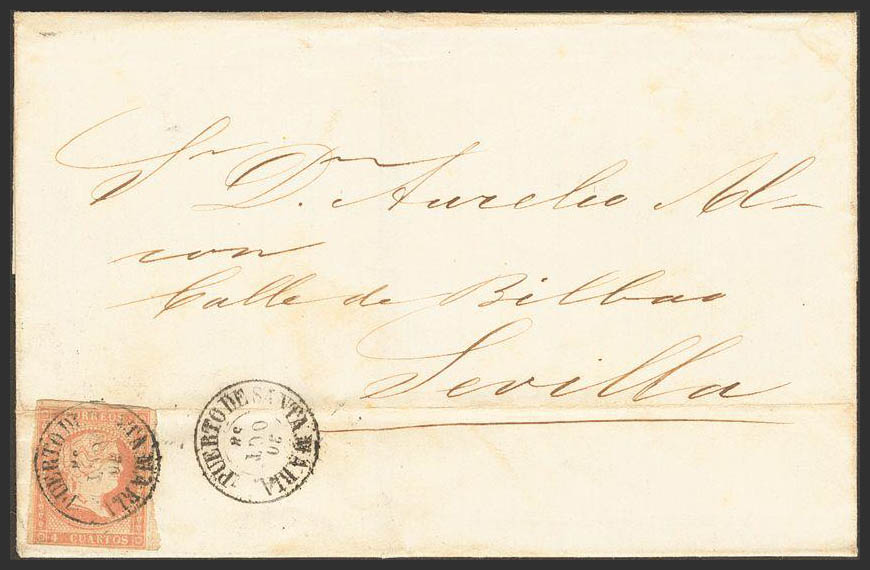 Sr Dn Aurelio Al-
con
Calle de Bilbao
Sevilla
CORREOS
4 CUARTOS
PUERTO DE SANTA MARIA.
20
OCT
58
PUERTO DE SANTA MARIA